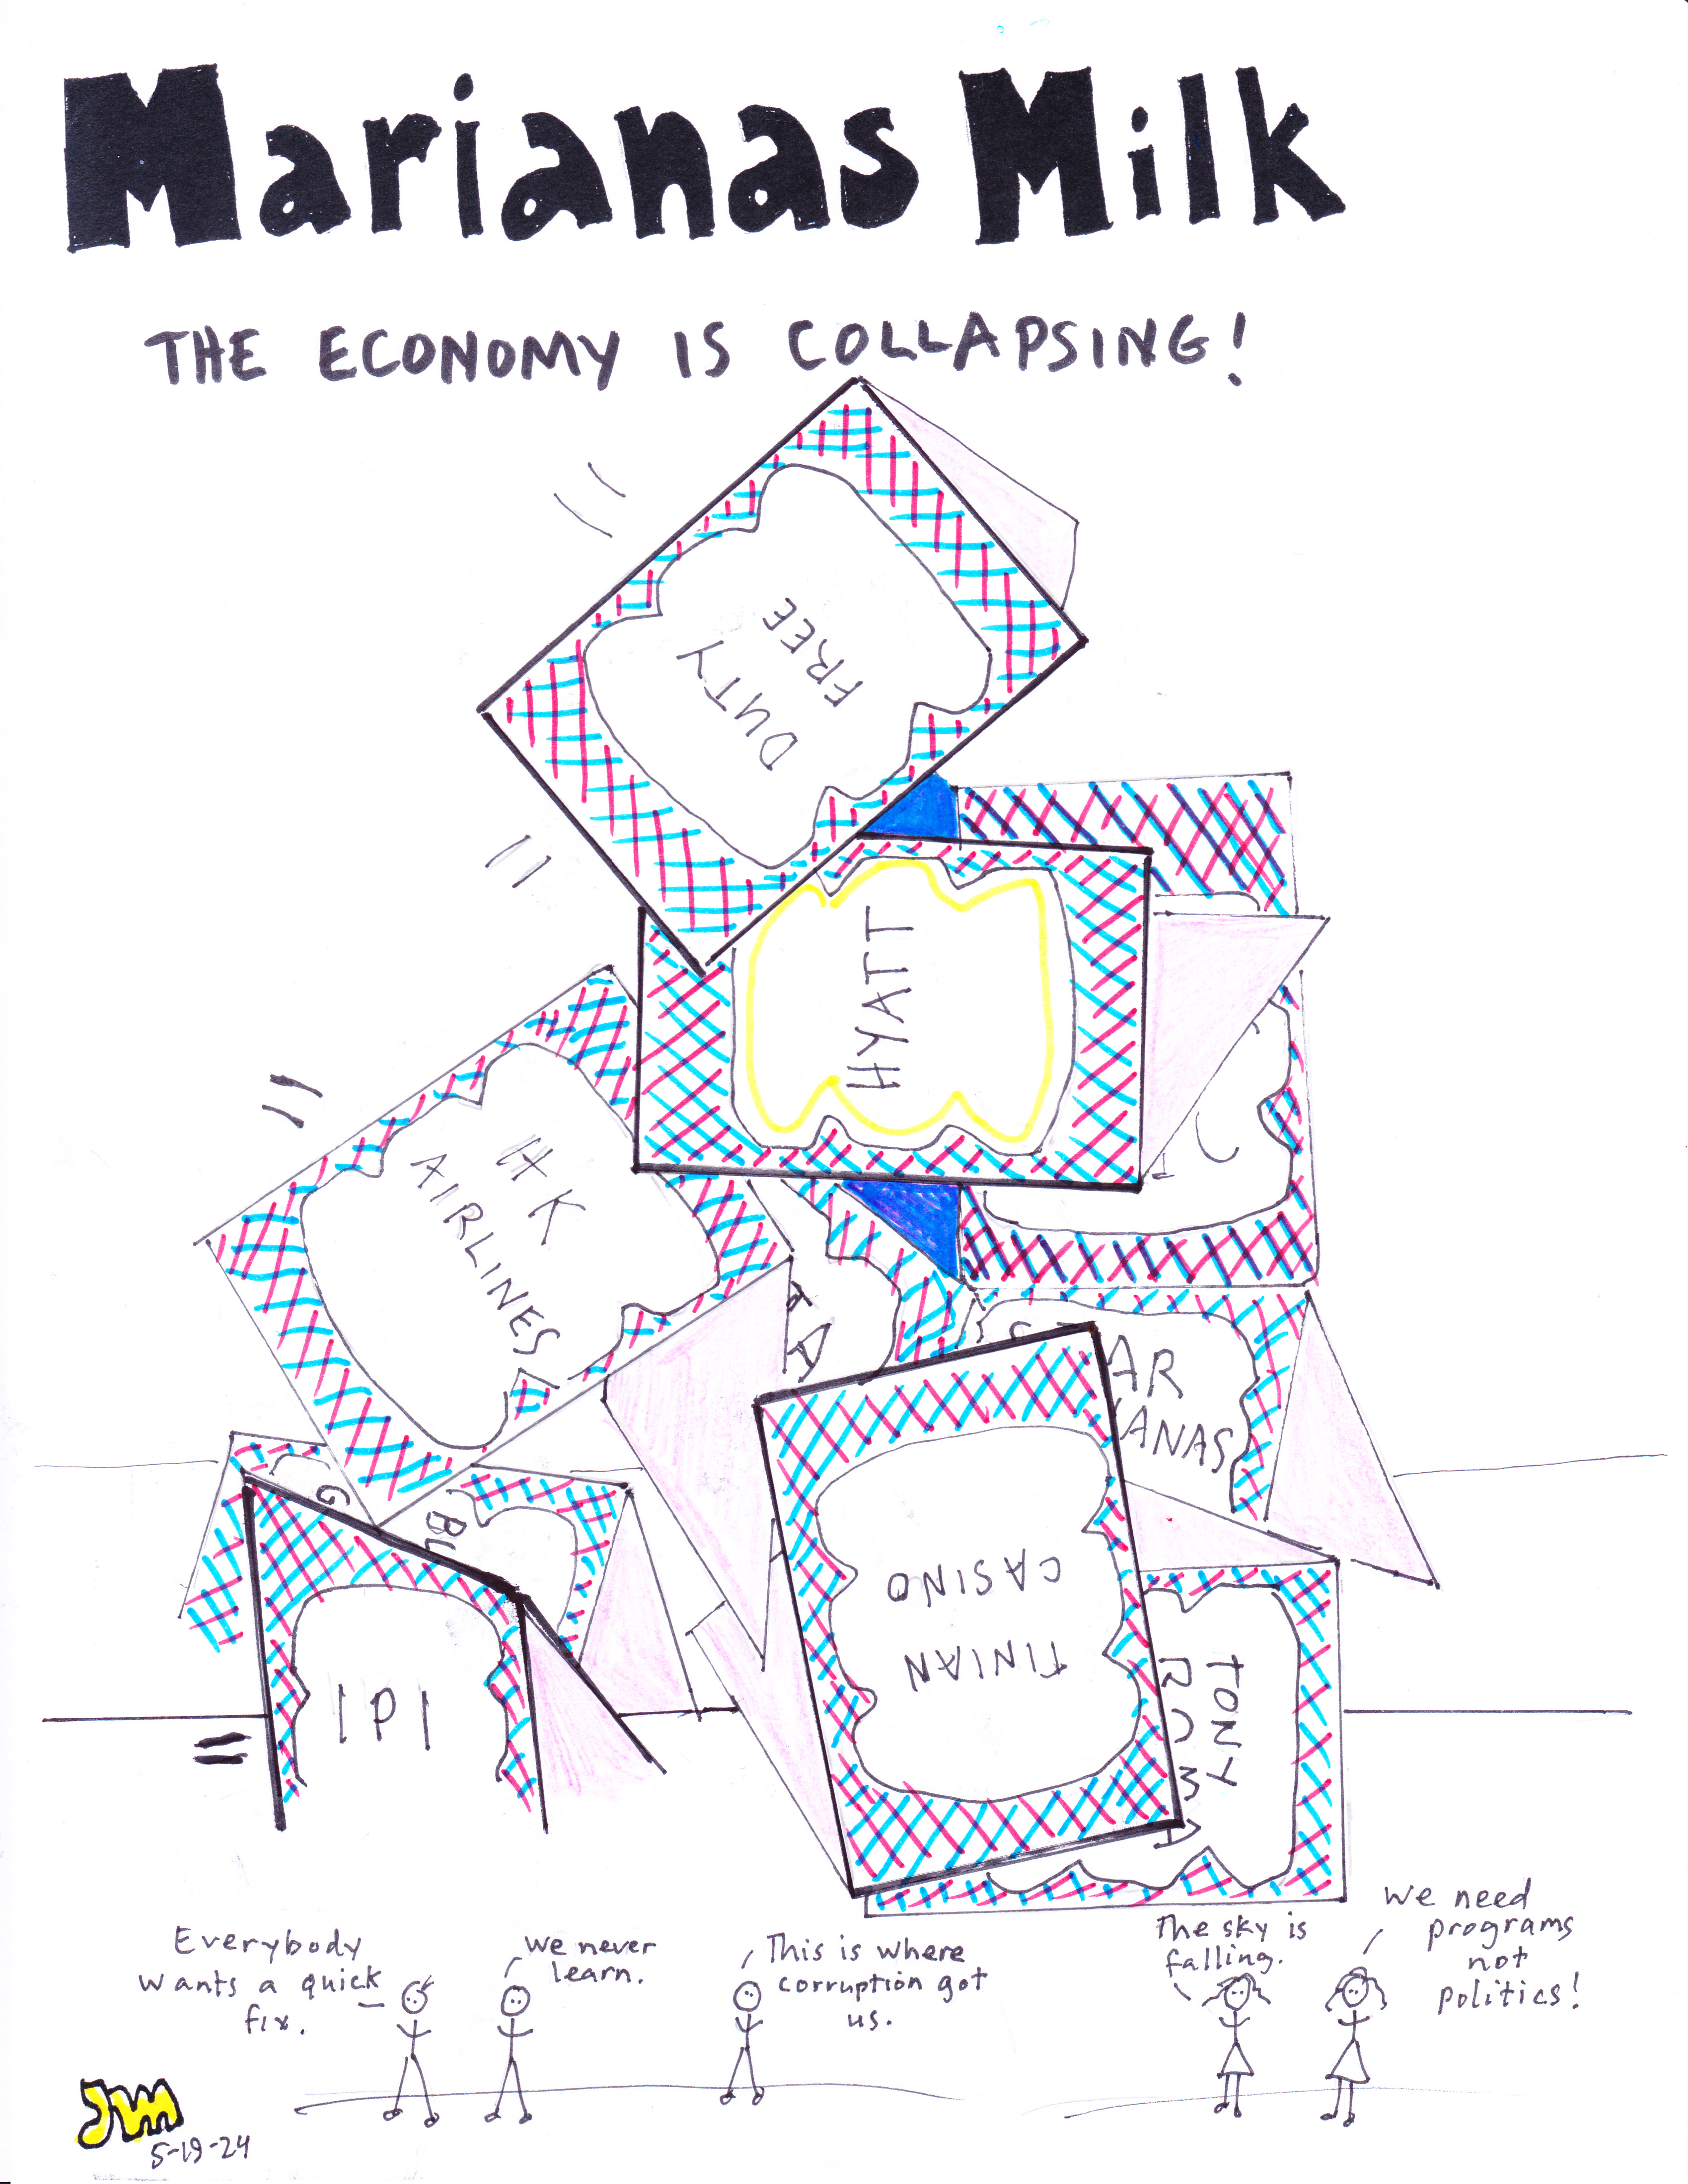 Marianas Milk
THE ECONOMY IS COLLAPSING!
DUTY
FREE
HYATT
HK
AIRLINES
IPI
TINIAN
CASINO
TONY
Everybody
wants a quick
fix.
We never
learn.
This is where
corruption got
us.
The sky is
falling.
We need
programs
not
politics!
JWM
5-19-24